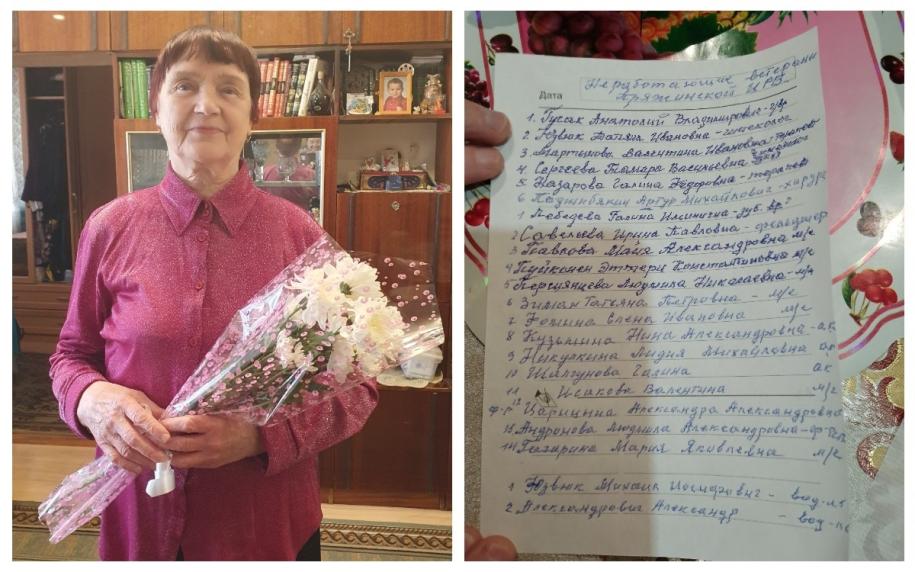 Неработающие ветераны
Дата Пряжинской ЦРБ
1. Гусак Анатолий Владимирович
2 Юзвюк Ивановна - гинеколог
3. Мартынова Валентина Ивановна
4. Сергеева Тамара Васильевна
5. Назарова Галина Фёдоровна - терапевт
6 Артур Михайлович - хирург
1 Лебедева Галина Ильинична - зуб. вр.
2 Савельева Ирина Павловна - фельдшер
3 Павлова Майя Александровна м/с
4 Этжери Константиновна м/с
5 Людмила Николаевна - м/с
6 Зиман Татьяна Петровна - м/с
7 Фомина Елена Ивановна м/с
8 Кузьмина Нина Александровна - ак
9 Никулкина Лидия Михайловна ак
10 Шалгунова Галина ак
11 Исакова Валентина м/с
12 Царицына Александра Александровна
13 Андронова Людмила Александровна
14 Гагарина Мария Яковлевна м/с
1 Юзвюк Михаил Иосифович - вод-ль
2 Александрович Александр - вод-ль